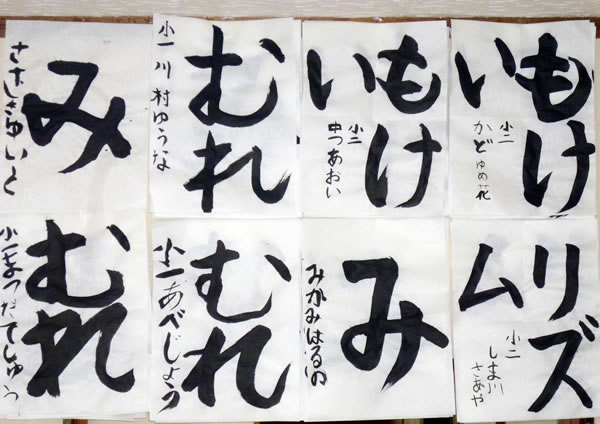 もけ
い
小二
かどゆめ花
もけ
い
小二
中つあおい
むれ
小一 川村ゆうな
み
リズ
ム
小二
しま川
さあや
み
みかみはるの
むれ
小一あべじょう
むれ
小一まつだてしゅう